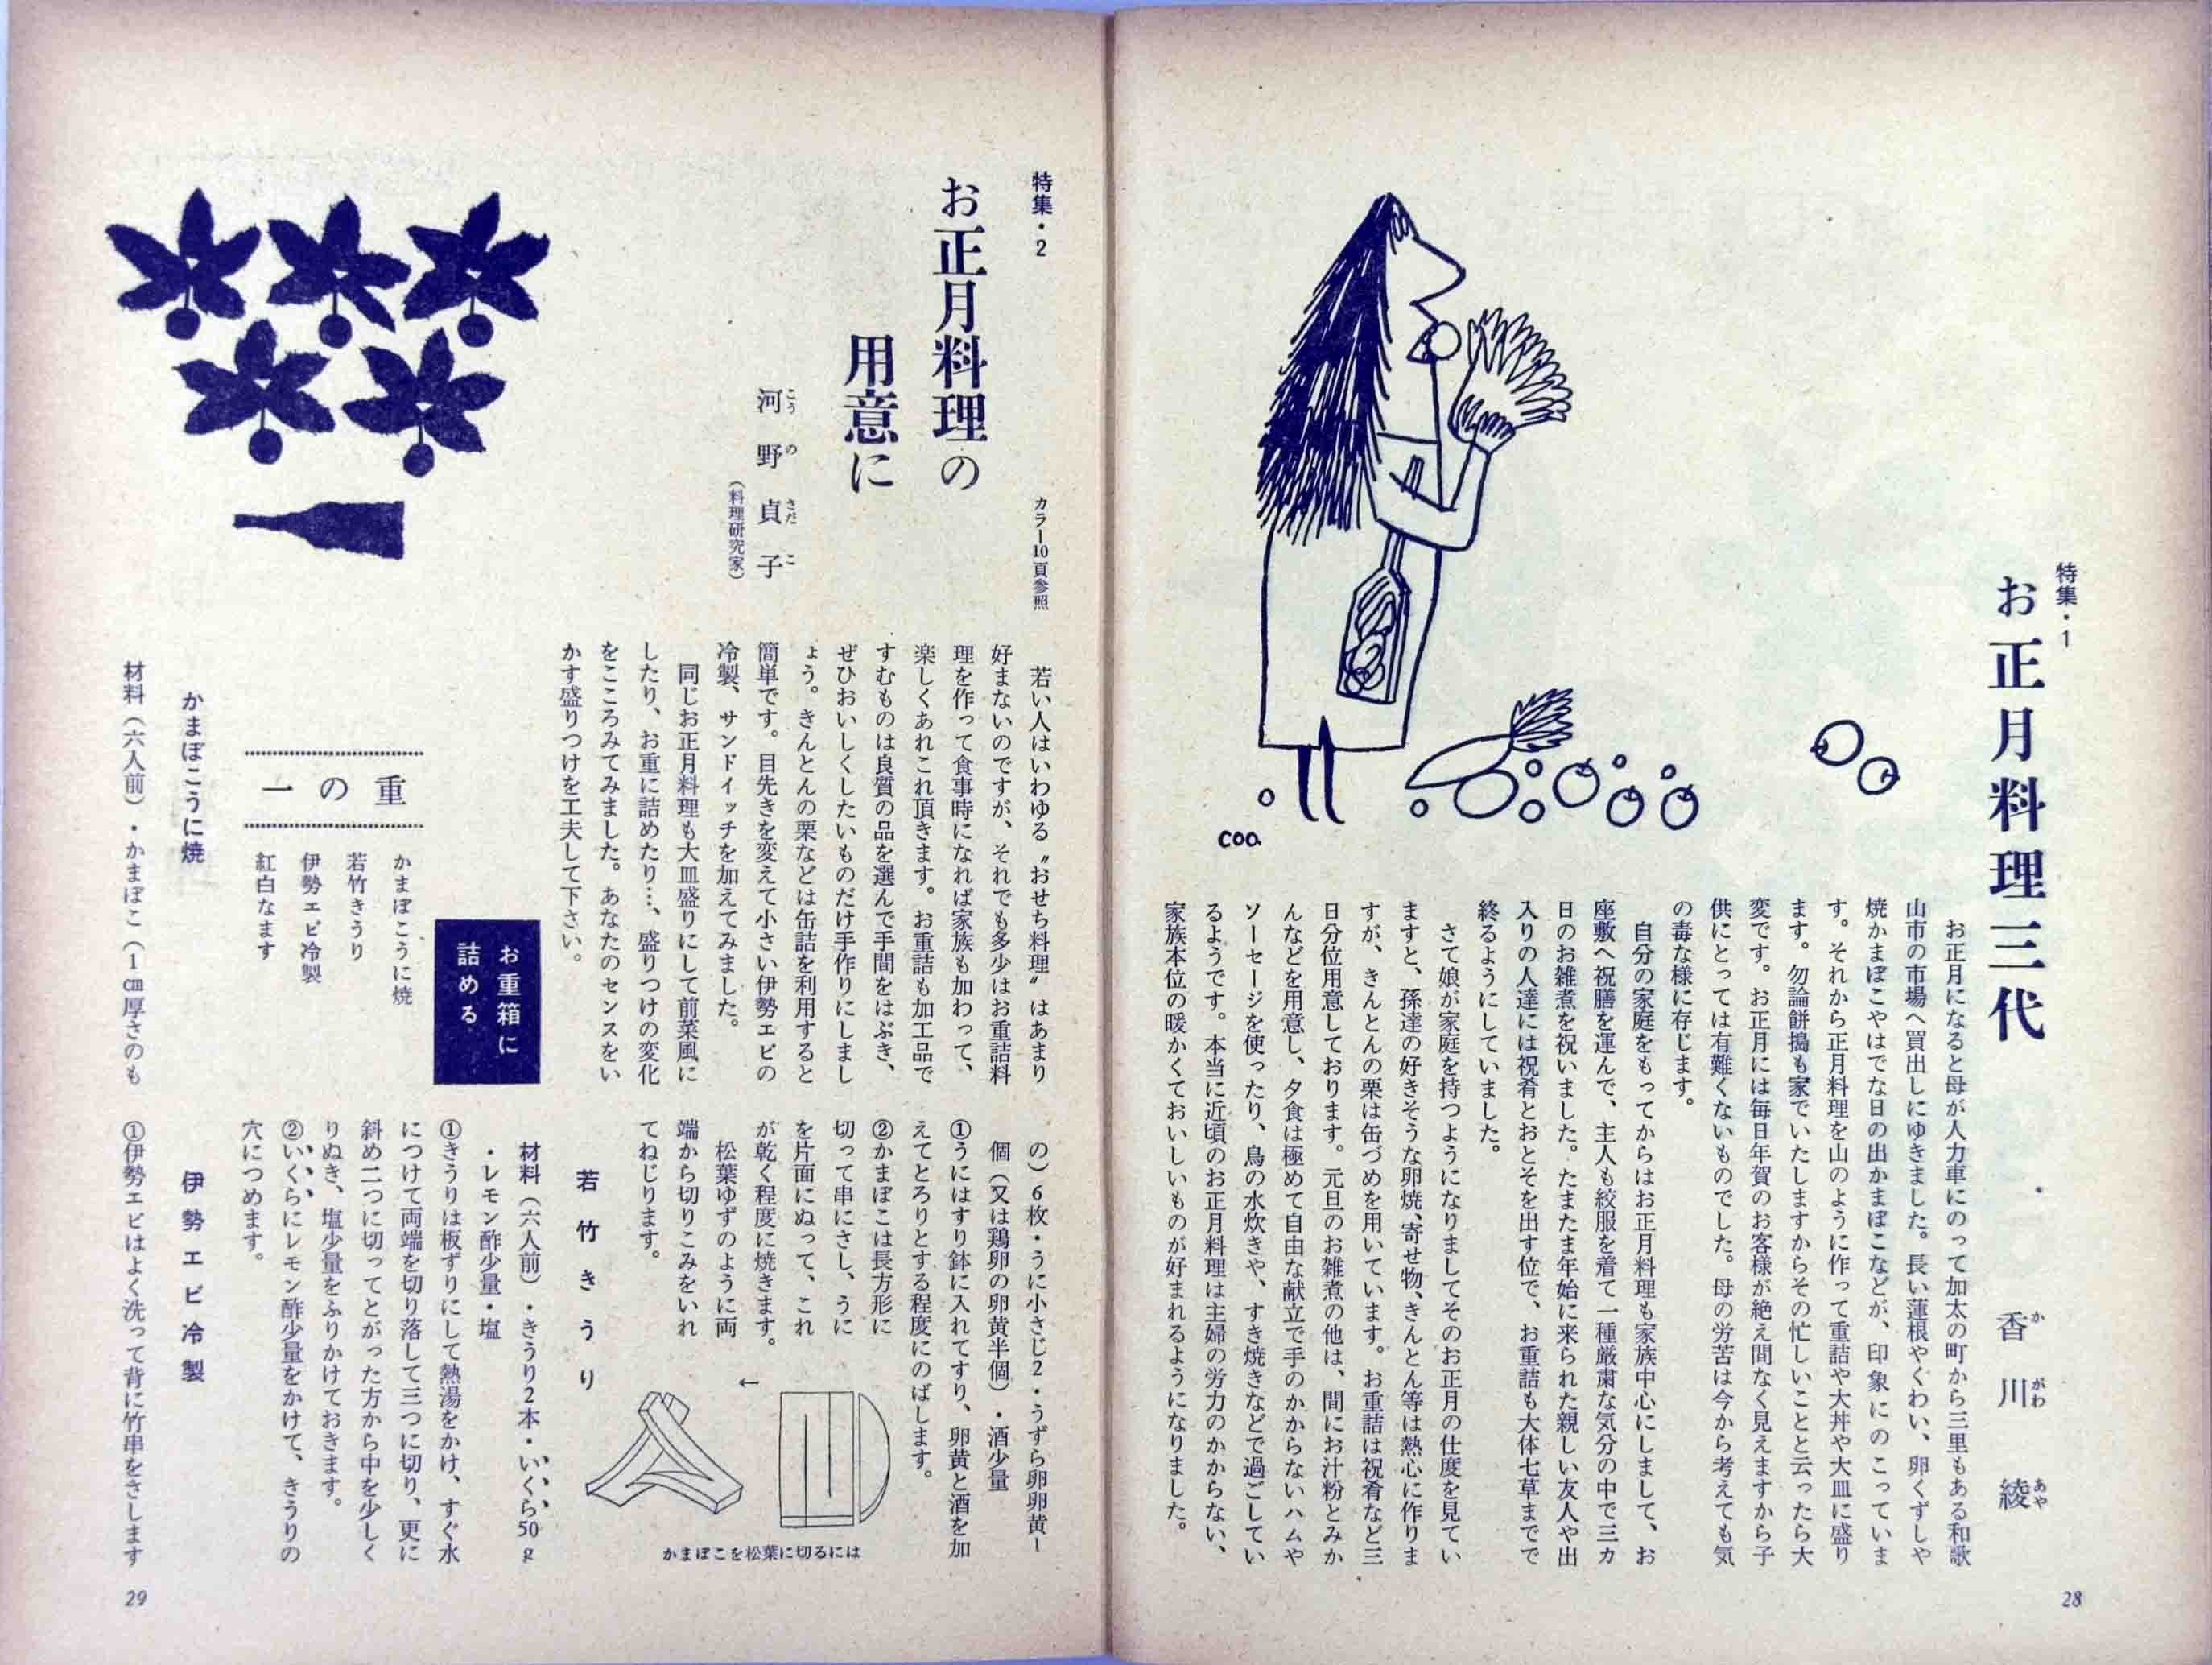 特集・1
お正月料理三代
香川綾
かがわあや
お正月になると母が人力車にのって加太の町から三里もある和歌
山市の市場へ買出しにゆきました。長い蓮根やくわい、卵くずしや
焼かまぼこやはでな日の出かまぼこなどが、印象にのこっていま
す。それから正月料理を山のように作って重詰や大丼や大皿に盛り
ます。勿論餅搗も家でいたしますからその忙しいことと云ったら大
変です。お正月には毎日年賀のお客様が絶え間なく見えますから子
供にとっては有難くないものでした。母の労苦は今から考えても気
の毒な様に存じます。
自分の家庭をもってからはお正月料理も家族中心にしまして、お
座敷へ祝膳を運んで、主人も紋服を着て一種厳粛な気分の中で三カ
日のお雑煮を祝いました。たまたま年始に来られた親しい友人や出
入りの人達には祝肴とおとそを出す位で、お重詰も大体七草までで
終るようにしていました。
さて娘が家庭を持つようになりましてそのお正月の仕度を見てい
ますと、孫達の好きそうな卵焼、寄せ物、きんとん等は熱心に作りま
すが、きんとんの栗は缶づめを用いています。お重詰は祝肴など三
日分位用意しております。元旦のお雑煮の他は、間にお汁粉とみか
んなどを用意し、夕食は極めて自由な献立で手のかからないハムや
ソーセージを使ったり、鳥の水炊きや、すき焼きなどで過ごしてい
るようです。本当に近頃のお正月料理は主婦の労力のかからない、
家族本位の暖かくておいしいものが好まれるようになりました。
coo.
28
特集・2
カラー10頁参照
お正月料理の
用意に
河野貞子
こうのさだこ
（料理研究家）
若い人はいわゆる〝おせち料理〟はあまり
好まないのですが、それでも多少はお重詰料
理を作って食事時になれば家族も加わって、
楽しくあれこれ頂きます。お重詰も加工品で
すむものは良質の品を選んで手間をはぶき、
ぜひおいしくしたいものだけ手作りにしまし
ょう。きんとんの栗などは缶詰を利用すると
簡単です。目先きを変えて小さい伊勢エビの
冷製、サンドイッチを加えてみました。
同じお正月料理も大皿盛りにして前菜風に
したり、お重に詰めたり…、盛りつけの変化
をこころみてみました。あなたのセンスをい
かす盛りつけを工夫して下さい。
お重箱に
詰める
一の重
かまぼこうに焼
若竹きうり
伊勢エビ冷製
紅白なます
かまぼこうに焼
材料（六人前）・かまぼこ（1㎝厚さのも
の）6枚・うに小さじ2・うずら卵卵黄1
個（又は鶏卵の卵黄半個）・酒少量
①うにはすり鉢に入れてすり、卵黄と酒を加
えてとろりとする程度にのばします。
②かまぼこは長方形に
切って串にさし、うに
を片面にぬって、これ
が乾く程度に焼きます。
松葉ゆずのように両
端から切りこみをいれ
てねじります。
←
かまぼこを松葉に切るには
若竹きうり
材料（六人前）・きうり2本・いくら50g
・レモン酢少量・塩
①きうりは板ずりにして熱湯をかけ、すぐ水
につけて両端を切り落して三つに切り、更に
斜め二つに切ってとがった方から中を少しく
りぬき、塩少量をふりかけておきます。
②いくらにレモン酢少量をかけて、きうりの
穴につめます。
伊勢エビ冷製
①伊勢エビはよく洗って背に竹串をさします
29